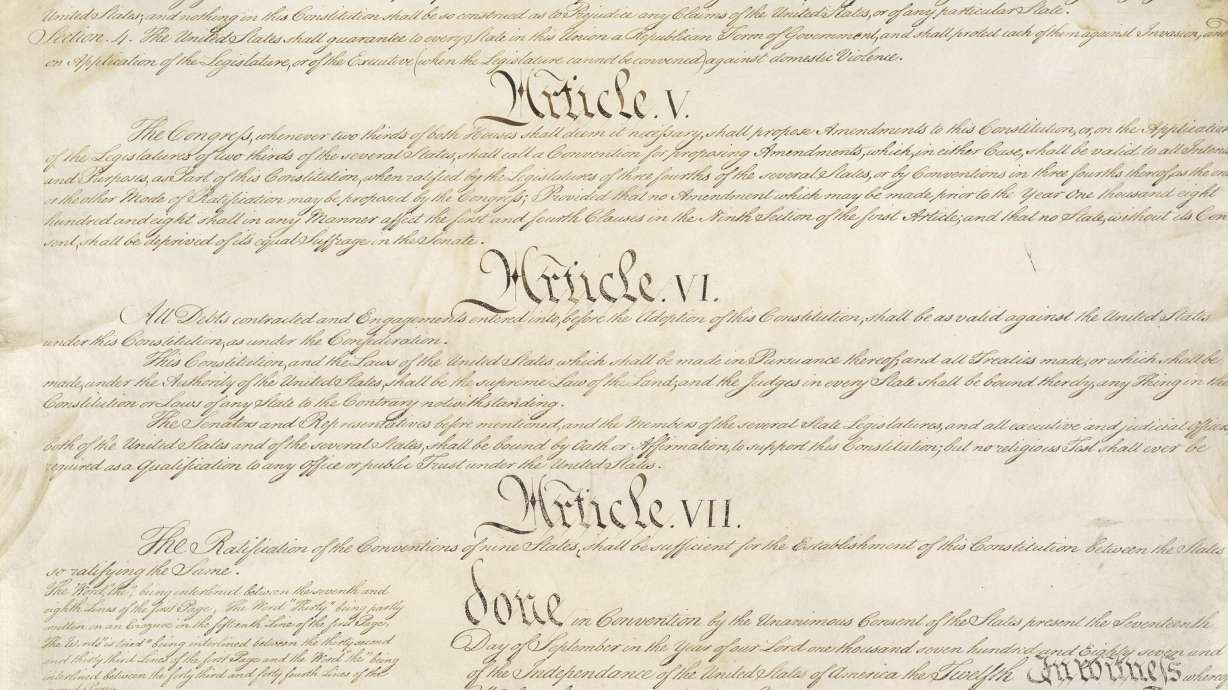 United States, and nothing in this Constitution shall be so construed as to Prejudice any Claims of the United States, or of any particular State.
Section. 4. The United States shall guarantee to every State in this Union a Republican Form of Government, and shall protect each of them against Invasion; and
on Application of the Legislature, or of the Executive (when the Legislature cannot be convened) against domestic Violence.
Article. V.
The Congress, whenever two thirds of both Houses shall deem it necessary, shall propose Amendments to this Constitution, or, on the Application
of the Legislatures of two thirds of the several States, shall call a Convention for proposing Amendments, which, in either Case, shall be valid to all Intents
and Purposes, as Part of this Constitution, when ratified by the Legislatures of three fourths of the several States, or by Conventions in three fourths thereof, as the one
or the other Mode of Ratification may be proposed by the Congress; Provided that no Amendment which may be made prior to the Year One thousand eight
hundred and eight shall in any Manner affect the first and fourth Clauses in the Ninth Section of the first Article; and that no State, without its Con
sent, shall be deprived of its equal Suffrage in the Senate.
Article. VI.
All Debts contracted and Engagements entered into, before the Adoption of this Constitution, shall be as valid against the United States
under this Constitution, as under the Confederation.
This Constitution, and the Laws of the United States which shall be made in Pursuance thereof; and all Treaties made, or which shall be
made, under the Authority of the United States, shall be the supreme Law of the Land; and the Judges in every State shall be bound thereby, any Thing in the
Constitution or Laws of any State to the Contrary notwithstanding.
The Senators and Representatives before mentioned, and the Members of the several State Legislatures, and all executive and judicial Officers,
both of the United States and of the several States, shall be bound by Oath or Affirmation, to support this Constitution; but no religious Test shall ever be
required as a Qualification to any Office or public Trust under the United States.
Article. VII.
The Ratification of the Conventions of nine States, shall be sufficient for the Establishment of this Constitution between the States
so ratifying the Same.
The Word, "the," being interlined between the seventh and
eighth Lines of the first Page, The Word "Thirty" being partly
written on an Erazure in the fifteenth Line of the first Page,
The Words "is tried" being interlined between the thirty second
and thirty third Lines of the first Page and the Word "the" being
interlined between the forty third and forty fourth Lines of the
second Page.
done in Convention by the Unanimous Consent of the States present the Seventeenth
Day of September in the Year of our Lord one thousand seven hundred and Eighty seven and
of the Independance of the United States of America the Twelfth In witness whereof